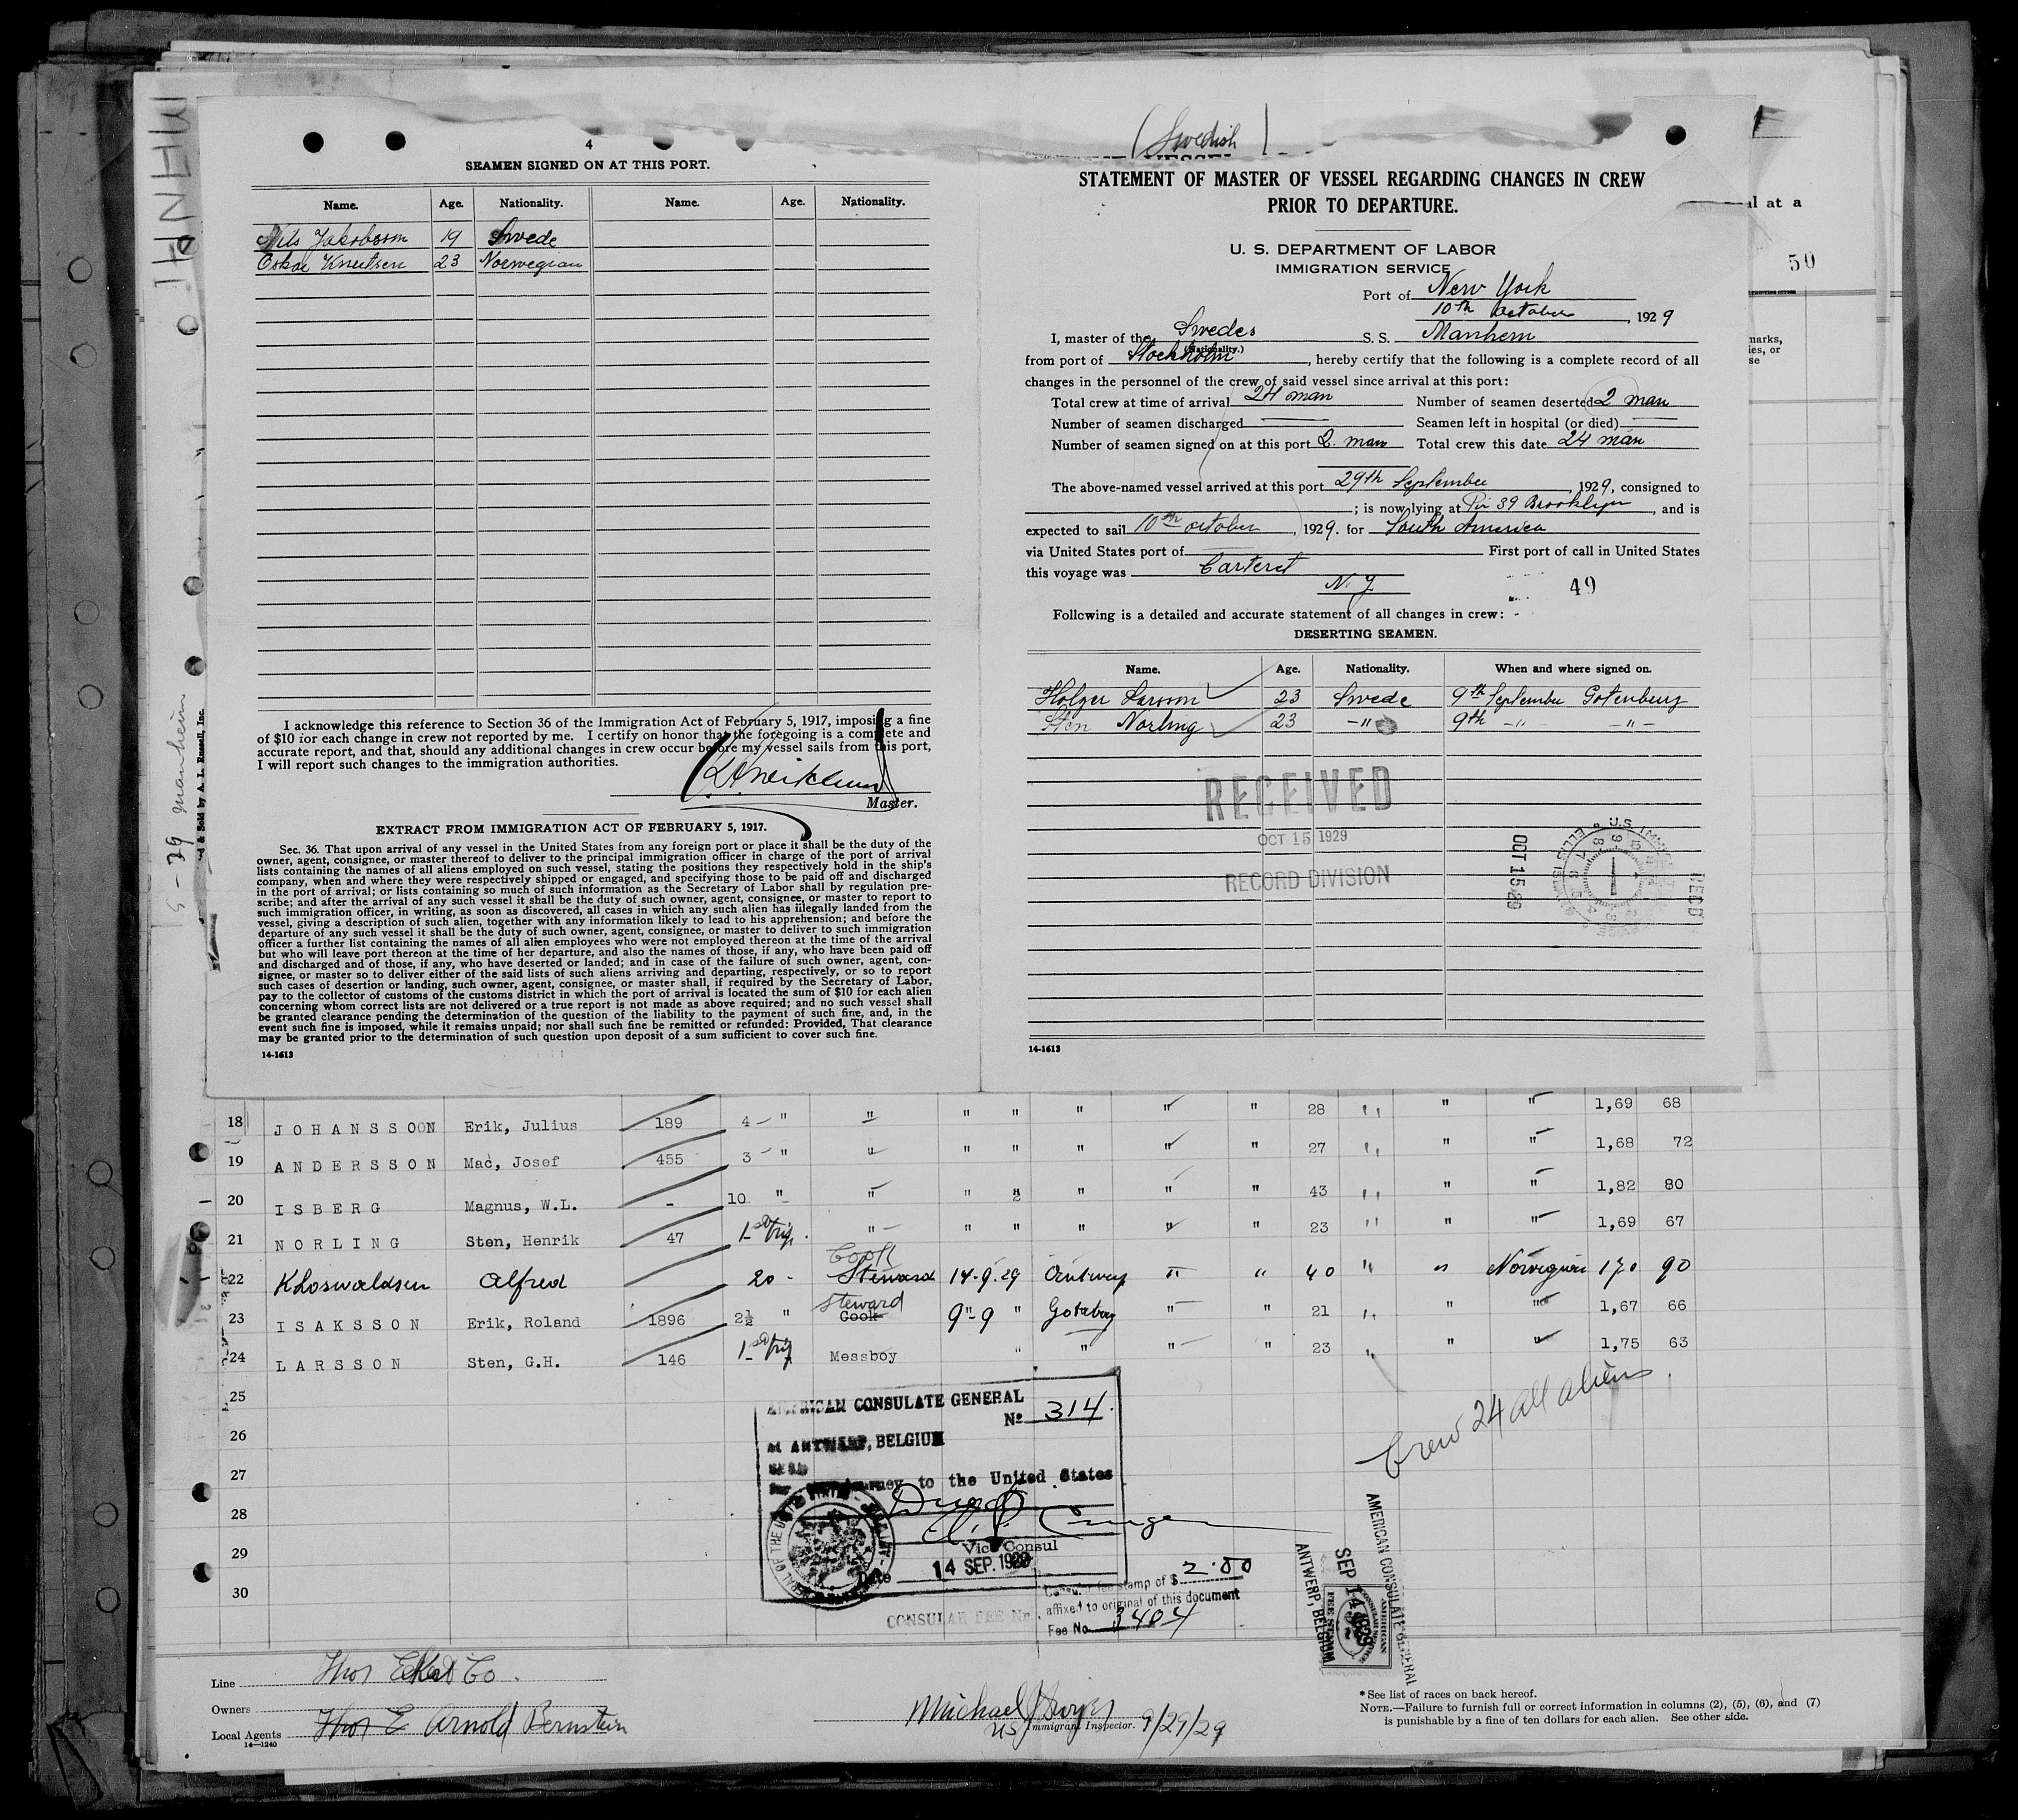 MANHEI
5-29 Manheim
d & Sold by A. L. Russell, Inc.
4
SEAMEN SIGNED ON AT THIS PORT.
Name. Age. Nationality. Name. Age. Nationality.
Nils Jakobsson 19 Swede
Oskar Knutsen 23 Norwegian
I acknowledge this reference to Section 36 of the Immigration Act of February 5, 1917, imposing a fine
of $10 for each change in crew not reported by me. I certify on honor that the foregoing is a complete and
accurate report, and that, should any additional changes in crew occur before my vessel sails from this port,
I will report such changes to the immigration authorities.
Master.
EXTRACT FROM IMMIGRATION ACT OF FEBRUARY 5, 1917.
Sec. 36. That upon arrival of any vessel in the United States from any foreign port or place it shall be the duty of the
owner, agent, consignee, or master thereof to deliver to the principal immigration officer in charge of the port of arrival
lists containing the names of all aliens employed on such vessel, stating the positions they respectively hold in the ship's
company, when and where they were respectively shipped or engaged, and specifying those to be paid off and discharged
in the port of arrival; or lists containing so much of such information as the Secretary of Labor shall by regulation pre-
scribe; and after the arrival of any such vessel it shall be the duty of such owner, agent, consignee, or master to report to
such immigration officer, in writing, as soon as discovered, all cases in which any such alien has illegally landed from the
vessel, giving a description of such alien, together with any information likely to lead to his apprehension; and before the
departure of any such vessel it shall be the duty of such owner, agent, consignee, or master to deliver to such immigration
officer a further list containing the names of all alien employees who were not employed thereon at the time of the arrival
but who will leave port thereon at the time of her departure, and also the names of those, if any, who have been paid off
and discharged and of those, if any, who have deserted or landed; and in case of the failure of such owner, agent, con-
signee, or master so to deliver either of the said lists of such aliens arriving and departing, respectively, or so to report
such cases of desertion or landing, such owner, agent, consignee, or master shall, if required by the Secretary of Labor,
pay to the collector of customs of the customs district in which the port of arrival is located the sum of $10 for each alien
concerning whom correct lists are not delivered or a true report is not made as above required; and no such vessel shall
be granted clearance pending the determination of the question of the liability to the payment of such fine, and, in the
event such fine is imposed, while it remains unpaid; nor shall such fine be remitted or refunded: Provided, That clearance
may be granted prior to the determination of such question upon deposit of a sum sufficient to cover such fine.
14-1613
(Swedish)
STATEMENT OF MASTER OF VESSEL REGARDING CHANGES IN CREW
PRIOR TO DEPARTURE.
U. S. DEPARTMENT OF LABOR
IMMIGRATION SERVICE
Port of New York
10th October, 1929
I, master of the Swedes S. S. Manhem
(Nationality.)
from port of Stockholm, hereby certify that the following is a complete record of all
changes in the personnel of the crew of said vessel since arrival at this port:
Total crew at time of arrival 24 man Number of seamen deserted 2 man
Number of seamen discharged Seamen left in hospital (or died)
Number of seamen signed on at this port 2. man Total crew this date 24 man
The above-named vessel arrived at this port 29th September, 1929, consigned to
; is now lying at Pir 39 Brooklyn, and is
expected to sail 10th october, 1929. for South America
via United States port of First port of call in United States
this voyage was Carteret
N. J.
49
Following is a detailed and accurate statement of all changes in crew:
DESERTING SEAMEN.
Name. Age. Nationality. When and where signed on.
Holger Larsson 23 Swede 9th September Gotenburg
Sten Norling 23 -"- 9th -"- -"-
RECEIVED
OCT 15 1929
RECORD DIVISION
OCT 15 29
RECD
14-1613
al at a
50
marks,
ies, or
se
18 JOHANSSOON Erik, Julius 189 4 " " " " " " " 28 " " " 1,69 68
19 ANDERSSON Mac, Josef 455 3 " " " " " " " 27 " " " 1,68 72
20 ISBERG Magnus, W.L. - 10 " " " " " " " 43 " " " 1,82 80
21 NORLING Sten, Henrik 47 1st trip " " " " " " 23 " " " 1,69 67
Cook
22 Khoswaldsen Alfred 20 - Steward 14.9.29 Antwerp " " 40 " " Norwegian 170 90
Steward
23 ISAKSSON Erik, Roland 1896 2½ " Cook 9"-9 " Goteborg " " 21 " " " 1,67 66
24 LARSSON Sten, G.H. 146 1st trip Messboy " " " " 23 " " " 1,75 63
25
26
27
28
29
30
Crew 24 all aliens.
AMERICAN CONSULATE GENERAL
No 314.
At ANTWERP, BELGIUM
journey to the United States
Vice Consul
Date 14 SEP. 1929
CONSULAR FEE Nr.
Consular fee stamp of $ 2.00
affixed to original of this document
Fee No 3404
AMERICAN CONSULATE GENERAL
SEP 14 1929
ANTWERP, BELGIUM
AMERICAN
FEE STAMP
Line Thor Eckert Co.
Owners
Local Agents Thor E Arnold Bernstein
14-1240
Michael J Dwyer
US Immigrant Inspector. 9/29/29
*See list of races on back hereof.
NOTE.—Failure to furnish full or correct information in columns (2), (5), (6), and (7)
is punishable by a fine of ten dollars for each alien. See other side.